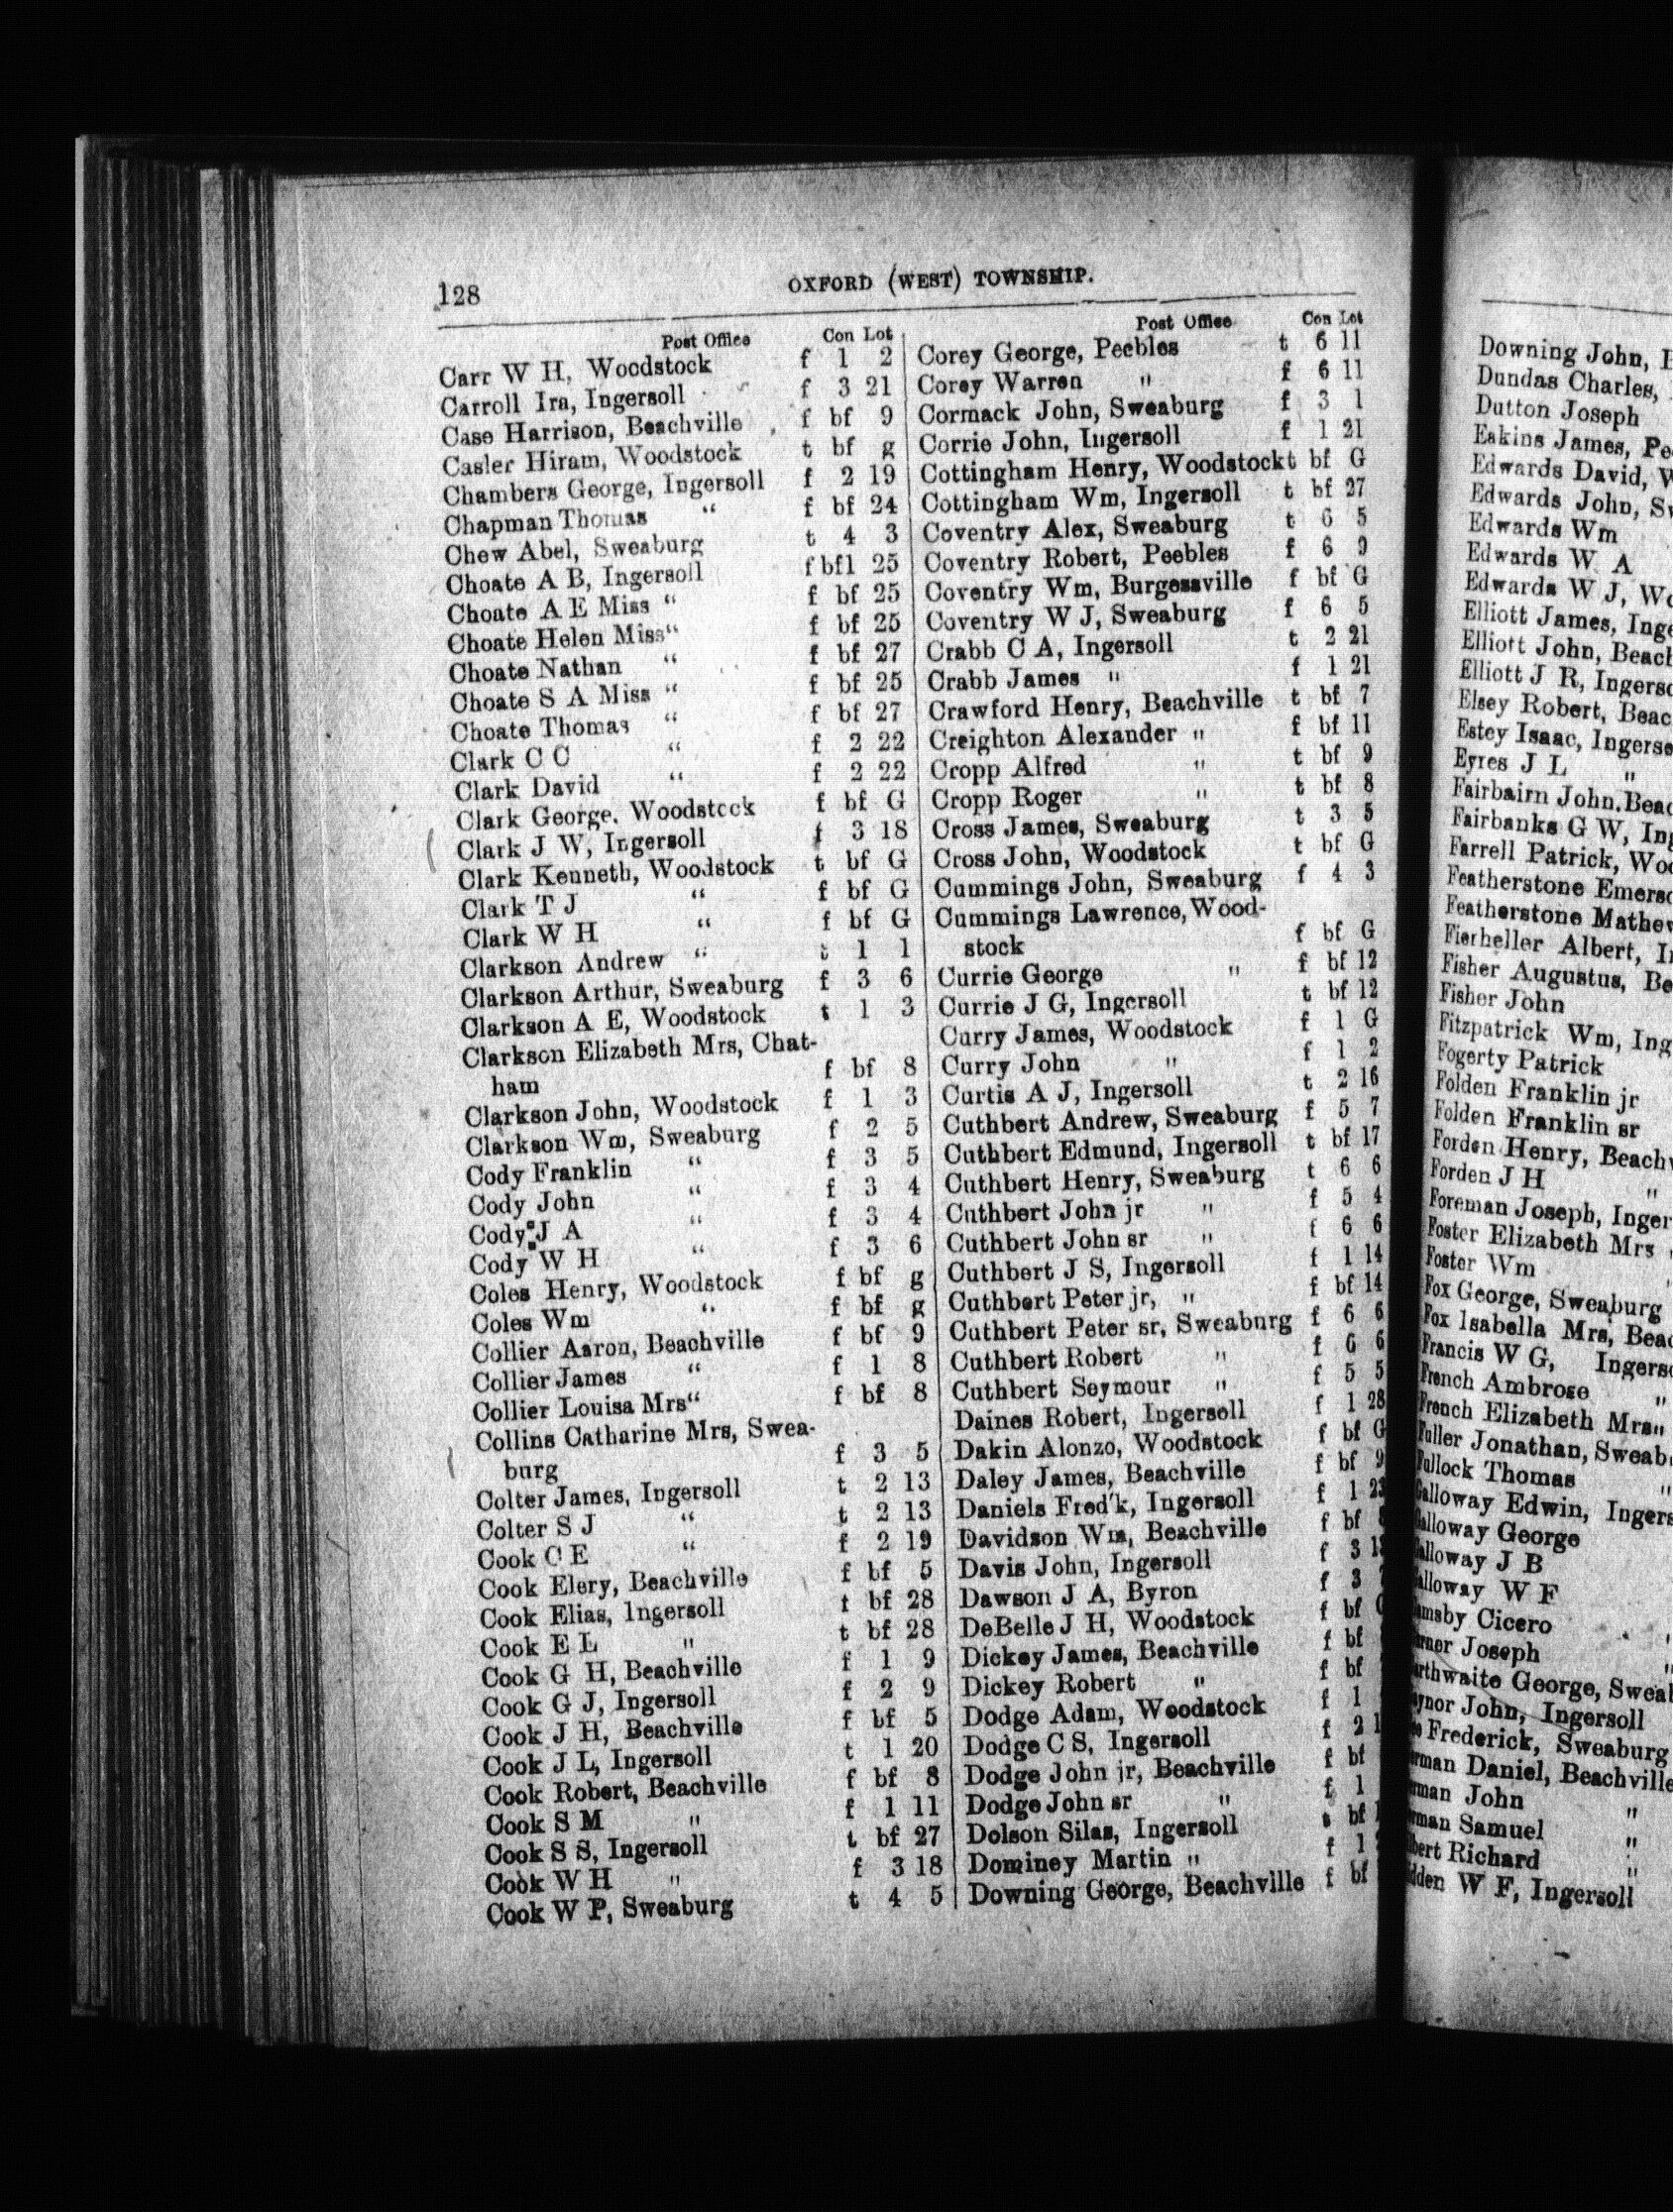 128
OXFORD (WEST) TOWNSHIP.
Post Office Con Lot
Carr W H, Woodstock f 1 2
Carroll Ira, Ingersoll f 3 21
Case Harrison, Beachville f bf 9
Casler Hiram, Woodstock t bf g
Chambers George, Ingersoll f 2 19
Chapman Thomas " f bf 24
Chew Abel, Sweaburg t 4 3
Choate A B, Ingersoll f bf1 25
Choate A E Miss " f bf 25
Choate Helen Miss " f bf 25
Choate Nathan " f bf 27
Choate S A Miss " f bf 25
Choate Thomas " f bf 27
Clark C C " f 2 22
Clark David " f 2 22
Clark George, Woodstock f bf G
Clark J W, Ingersoll f 3 18
Clark Kenneth, Woodstock t bf G
Clark T J " f bf G
Clark W H " f bf G
Clarkson Andrew " t 1 1
Clarkson Arthur, Sweaburg f 3 6
Clarkson A E, Woodstock t 1 3
Clarkson Elizabeth Mrs, Chat-
ham f bf 8
Clarkson John, Woodstock f 1 3
Clarkson Wm, Sweaburg f 2 5
Cody Franklin " f 3 5
Cody John " f 3 4
Cody J A " f 3 4
Cody W H " f 3 6
Coles Henry, Woodstock f bf g
Coles Wm " f bf g
Collier Aaron, Beachville f bf 9
Collier James " f 1 8
Collier Louisa Mrs " f bf 8
Collins Catharine Mrs, Swea-
burg f 3 5
Colter James, Ingersoll t 2 13
Colter S J " t 2 13
Cook C E " f 2 19
Cook Elery, Beachville f bf 5
Cook Elias, Ingersoll t bf 28
Cook E L " t bf 28
Cook G H, Beachville f 1 9
Cook G J, Ingersoll f 2 9
Cook J H, Beachville f bf 5
Cook J L, Ingersoll t 1 20
Cook Robert, Beachville f bf 8
Cook S M " f 1 11
Cook S S, Ingersoll t bf 27
Cook W H " f 3 18
Cook W P, Sweaburg t 4 5
Post Office Con Lot
Corey George, Peebles t 6 11
Corey Warren " f 6 11
Cormack John, Sweaburg f 3 1
Corrie John, Ingersoll f 1 21
Cottingham Henry, Woodstock t bf G
Cottingham Wm, Ingersoll t bf 27
Coventry Alex, Sweaburg t 6 5
Coventry Robert, Peebles f 6 9
Coventry Wm, Burgessville f bf G
Coventry W J, Sweaburg f 6 5
Crabb C A, Ingersoll t 2 21
Crabb James " f 1 21
Crawford Henry, Beachville t bf 7
Creighton Alexander " f bf 11
Cropp Alfred " t bf 9
Cropp Roger " t bf 8
Cross James, Sweaburg t 3 5
Cross John, Woodstock t bf G
Cummings John, Sweaburg f 4 3
Cummings Lawrence, Wood-
stock f bf G
Currie George " f bf 12
Currie J G, Ingersoll t bf 12
Curry James, Woodstock f 1 G
Curry John " f 1 2
Curtis A J, Ingersoll t 2 16
Cuthbert Andrew, Sweaburg f 5 7
Cuthbert Edmund, Ingersoll t bf 17
Cuthbert Henry, Sweaburg t 6 6
Cuthbert John jr " f 5 4
Cuthbert John sr " f 6 6
Cuthbert J S, Ingersoll f 1 14
Cuthbert Peter jr, " f bf 14
Cuthbert Peter sr, Sweaburg f 6 6
Cuthbert Robert " f 6 6
Cuthbert Seymour " f 5 5
Daines Robert, Ingersoll f 1 28
Dakin Alonzo, Woodstock f bf G
Daley James, Beachville f bf 9
Daniels Fred'k, Ingersoll f 1 23
Davidson Wm, Beachville f bf
Davis John, Ingersoll f 3
Dawson J A, Byron f 3
DeBelle J H, Woodstock f bf
Dickey James, Beachville f bf
Dickey Robert " f bf
Dodge Adam, Woodstock f 1
Dodge C S, Ingersoll f 2
Dodge John jr, Beachville f bf
Dodge John sr " f 1
Dolson Silas, Ingersoll bf
Dominey Martin " f 1
Downing George, Beachville f bf
Downing John,
Dundas Charles,
Dutton Joseph
Eakins James, Pe
Edwards David, W
Edwards John, Sw
Edwards Wm
Edwards W A
Edwards W J, Wo
Elliott James, Inge
Elliott John, Beach
Elliott J R, Ingerso
Elsey Robert, Beac
Estey Isaac, Ingerso
Eyres J L "
Fairbairn John, Beac
Fairbanks G W, Ing
Farrell Patrick, Woo
Featherstone Emerso
Featherstone Mathew
Fierheller Albert, In
Fisher Augustus, Be
Fisher John
Fitzpatrick Wm, Ing
Fogerty Patrick
Folden Franklin jr
Folden Franklin sr
Forden Henry, Beachv
Forden J H "
Foreman Joseph, Inger
Foster Elizabeth Mrs
Foster Wm
Fox George, Sweaburg
Fox Isabella Mrs, Beac
Francis W G, Ingerso
French Ambrose "
French Elizabeth Mrs "
Fuller Jonathan, Sweab
Fullock Thomas "
Galloway Edwin, Ingers
Galloway George
Galloway J B
Galloway W F
amsby Cicero
rner Joseph "
arthwaite George, Sweab
aynor John, Ingersoll
Frederick, Sweaburg
rman Daniel, Beachville
rman John "
rman Samuel "
bert Richard "
dden W F, Ingersoll